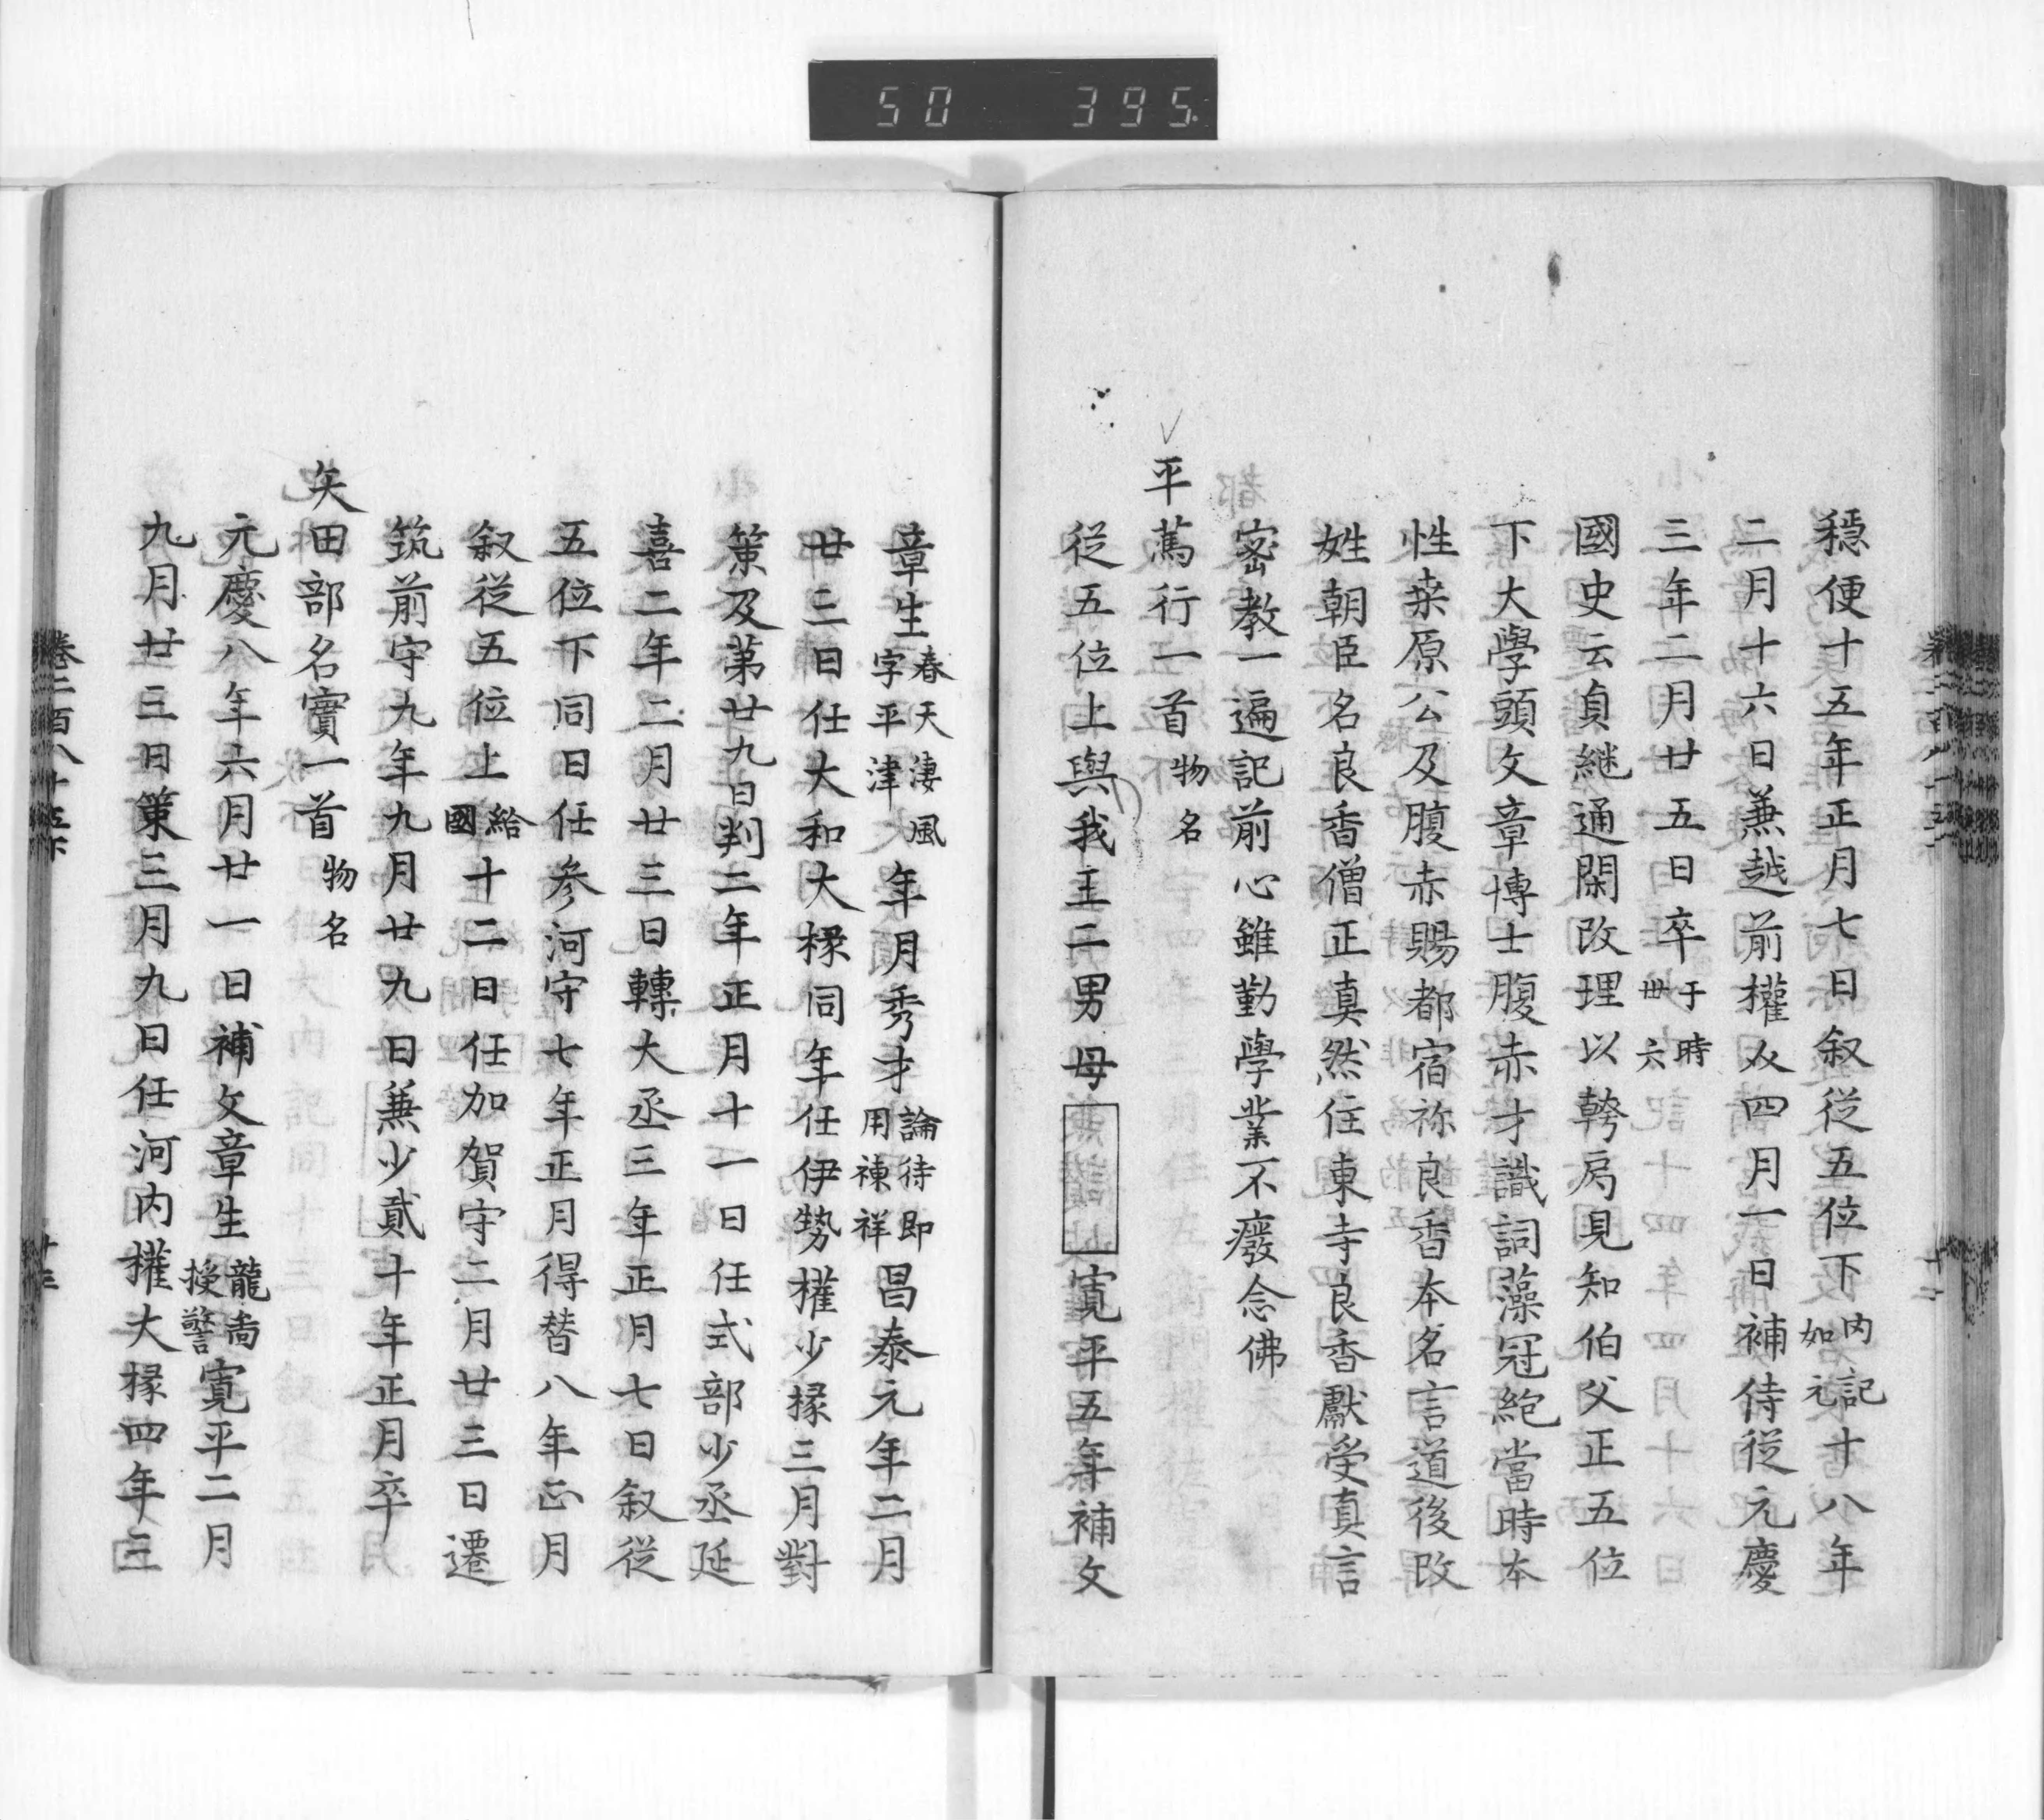 50 395
穏便十五年正月七日叙従五位下内記如元十八年
二月十六日兼越前權介四月一日補侍従元慶
三年二月廿五日卒于時卌六
國史云貞継通閑改理以幹局見知伯父正五位
下大學頭文章博士腹赤才識詞藻冠絶當時本
性桒原公及腹赤賜都宿祢良香本名言道後改
姓朝臣名良香僧正真然住東寺良香獻受真言
密教一遍記前心雖勤學業不癈念佛
平篤行一首物名
従五位上與我王二男母寛平五年補文
章生春天凄風字平津年月秀才論待即用棟祥昌泰元年二月
廿三日任大和大掾同年任伊勢權少掾三月對
策及第廿九日判二年正月十一日任式部少丞延
喜二年二月廿三日轉大丞三年正月七日叙従
五位下同日任参河守七年正月得替八年正月
叙従五位上給國十二日任加賀守二月廿三日遷
筑前守九年九月廿九日兼少貳十年正月卒
矢田部名實一首物名
元慶八年六月廿一日補文章生龍圖授警寛平二月
九月廿三日策三月九日任河内權大掾四年三
卷二百八十五下